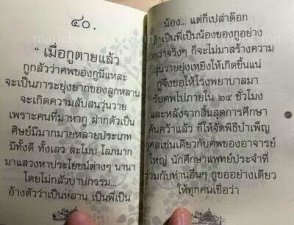 ๔๐.
" เมื่อกูตายแล้ว
กูกลัวว่าศพของกูนี่แหละ
จะเป็นภาระยุ่งยากของลูกหลาน
จะเกิดความสับสนวุ่นวาย
เพราะคนที่มาหากู ฝากตัวเป็น
ศิษย์มีมากมายหลายประเภท
มีทั้งดี ทั้งเลว ละโมบ โลภมาก
มาแสวงหาประโยชน์ต่างๆ นานา
โดยไม่กลัวบาปกรรม...
อ้างตัวว่าเป็นหลาน เป็นพี่เป็น
น้อง... แต่ก็เปล่าดอก
ถ้าเป็นพี่เป็นน้องของกูอย่าง
มากว่าจริงๆ ก็จะไม่มาสร้างความ
วุ่นวายยุ่งเหยิงให้เกิดขึ้นแน่
กูจึงขอให้โรงพยาบาลมา
รับศพไปภายใน ๒๔ ชั่วโมง
และหลังจากสิ้นสุดการศึกษา
ค้นคว้าแล้ว ก็ให้จัดพิธีบำเพ็ญ
กุศลเช่นเดียวกับศพของอาจารย์
ใหญ่ นักศึกษาแพทย์ประจำที่
รวมกับท่านอื่นๆ กูขออย่างเดียว
ให้ทุกคนเชื่อว่า